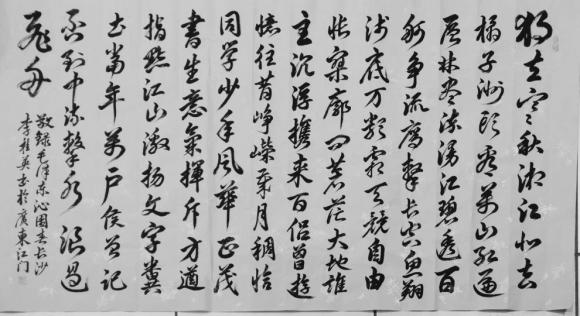 独立寒秋湘江北去
橘子洲头看萬山红遍
层林尽染漫江碧透百
舸争流鹰擊长空鱼翔
浅底万類霜天競自由
怅寥廓问苍茫大地誰
主沉浮携来百侣曾游
憶往昔峥嵘岁月稠恰
同学少年风華正茂
書生意氣揮斥方遒
指點江山激扬文字粪
土當年萬户侯曾记
否到中流擊水浪遏
飛舟
敬録毛泽东沁园春长沙
李桂英书於廣東江门